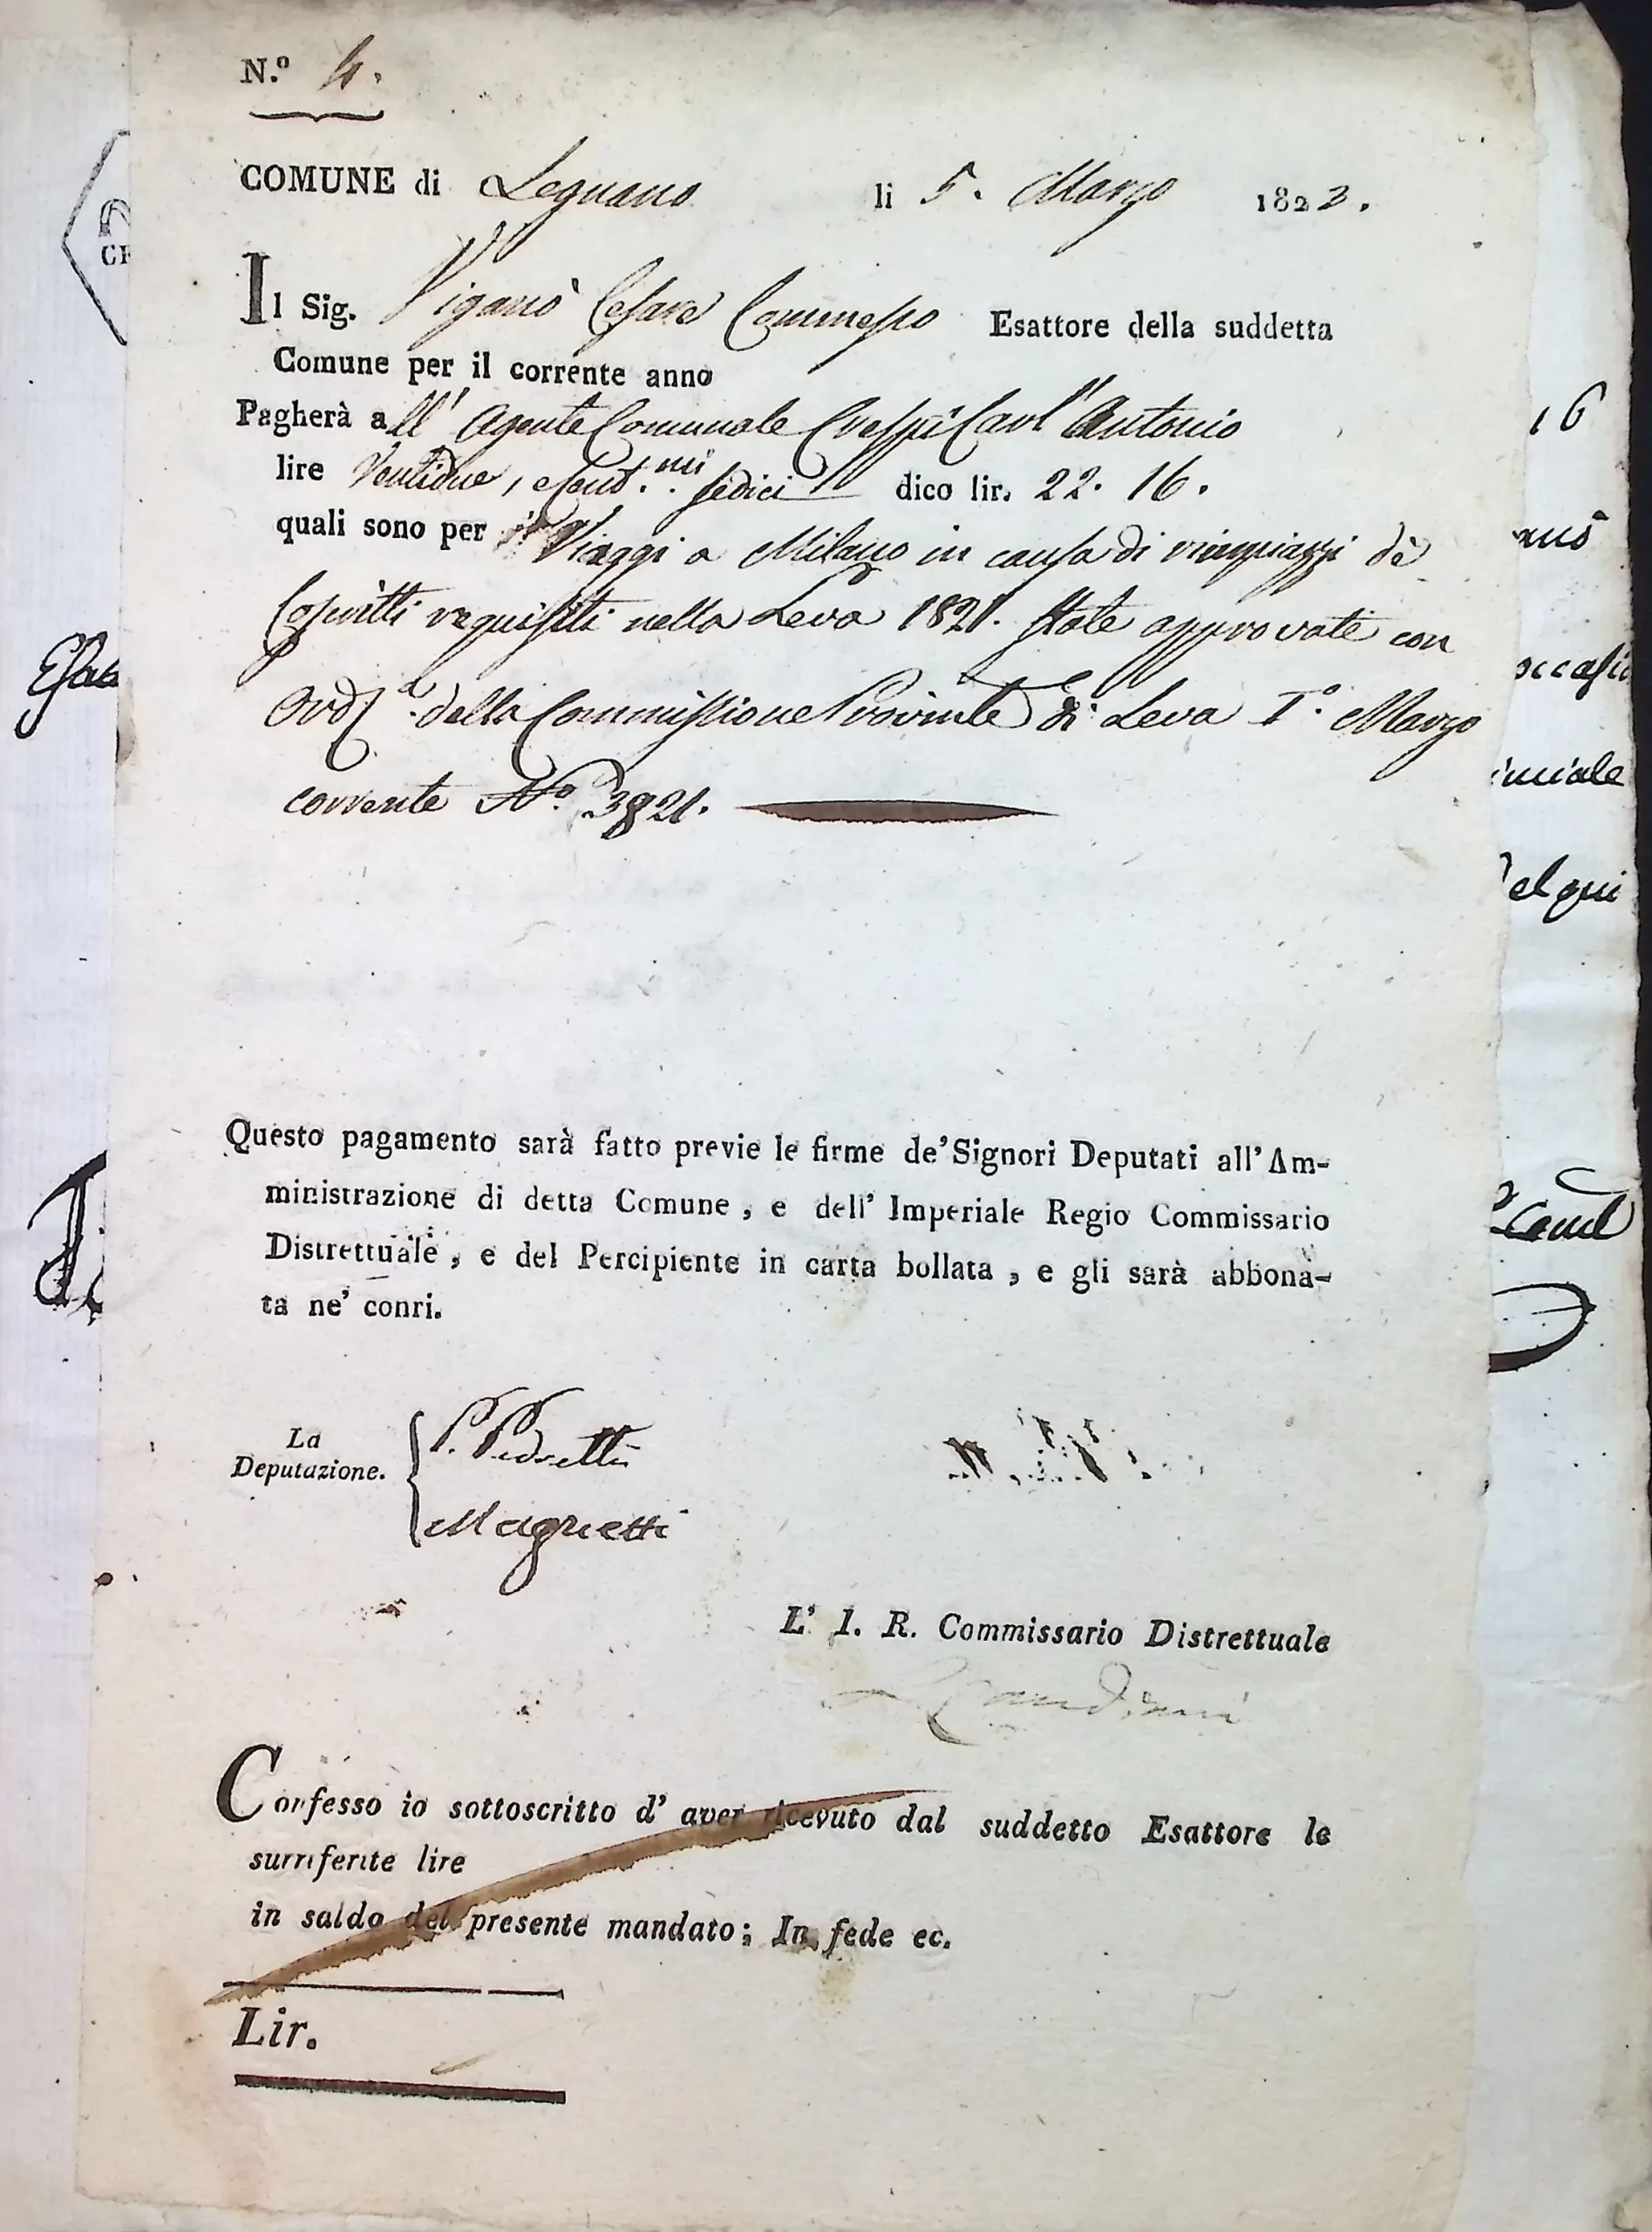 N.º 4.
COMUNE di Legnano li 5. Marzo 1822.
Il Sig. Viganò Cesare Commesso Esattore della suddetta
Comune per il corrente anno
Pagherà all' Agente Comunale Crespi Carl'Antonio
lire Ventidue, e Cent.mi sedici dico lir. 22. 16.
quali sono per Viaggi a Milano in causa di rimpiazzi de
Coscritti requisiti nella Leva 1821. State approvate con
Ord.a della Commissione Provinle di Leva I.º Marzo
corrente Nº 3821.
Questo pagamento sarà fatto previe le firme de' Signori Deputati all' Am-
ministrazione di detta Comune, e dell' Imperiale Regio Commissario
Distrettuale, e del Percipiente in carta bollata, e gli sarà abbona-
ta ne' conri.
La
Deputazione.
P. Pedretti
Magnetti
L' I. R. Commissario Distrettuale
Confesso io sottoscritto d' aver ricevuto dal suddetto Esattore le
surriferite lire
in saldo del presente mandato; In fede ec.
Lir.
16
occasi
inciale
el qui